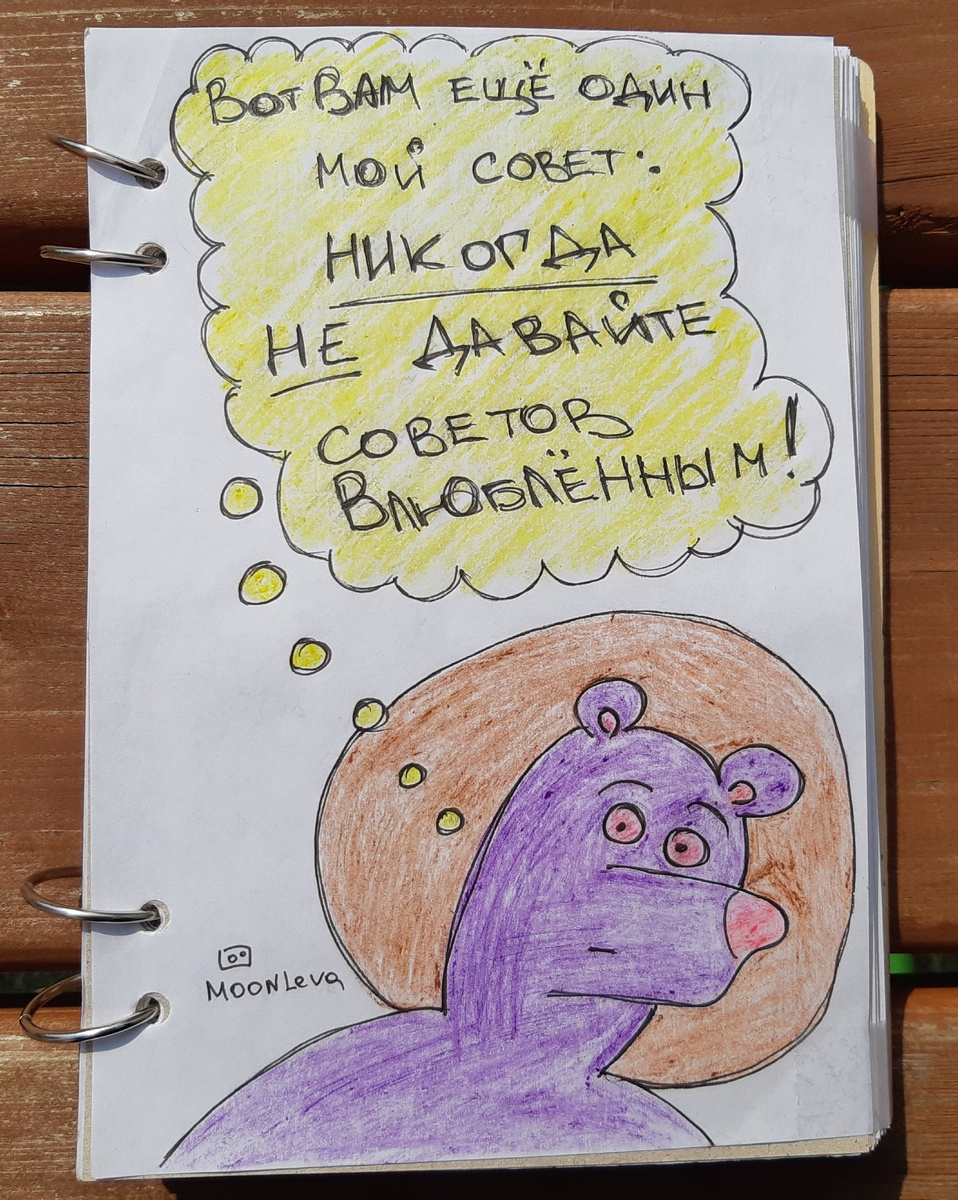 Вот Вам ещё один
мой совет:
никогда
не давайте
советов
Влюблённым!
MOONLeva